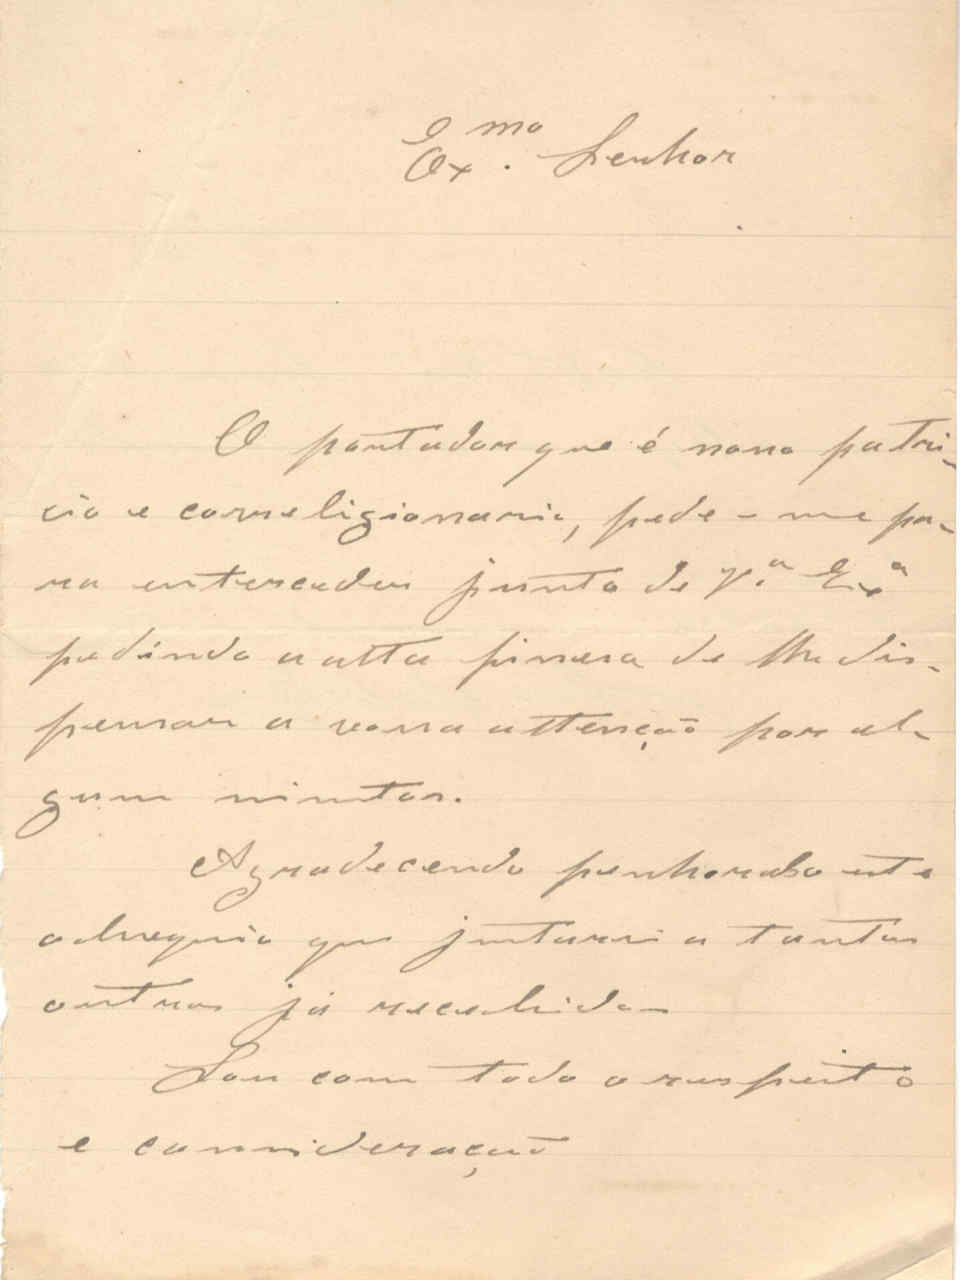 Ex.mo Senhor
O portador que é nosso patri-
cio e correligionario, pede-me pa-
ra enterceder junto de V.a Exa
pedindo a alta finesa de lhe dis-
pensar a vossa attenção por al-
guns minutos.
Agradecendo penhorado este
obsequio que juntarei a tantos
outros já recebidos
Sou com todo o respeito
e consideração